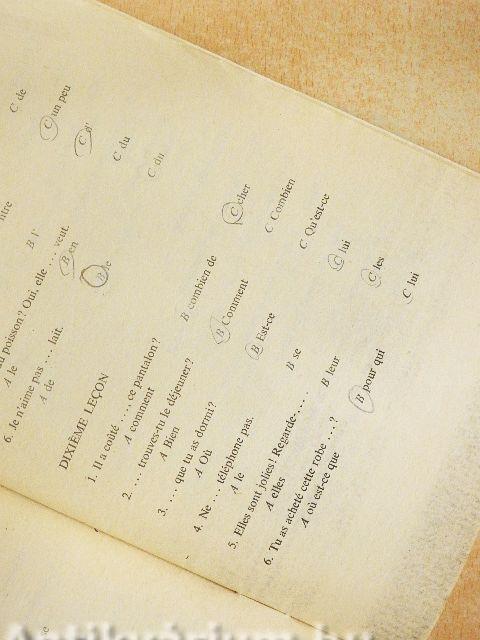 C de
C un peu
C d'
C du
C du
B l'
poisson? Oui, elle ... veut.
A le B en
6. Je n'aime pas .... lait.
A de B le
DIXIÈME LEÇON
1. Il a coûté ...., ce pantalon?
A comment B combien de C cher
2. ... trouves-tu le déjeuner?
A Bien B Comment C Combien
3. ... que tu as dormi?
A Où B Est-ce C Qu'est-ce
4. Ne ... téléphone pas.
A le B se C lui
5. Elles sont jolies! Regarde-....
A elles B leur C les
6. Tu as acheté cette robe ...?
A où est-ce que B pour qui C lui